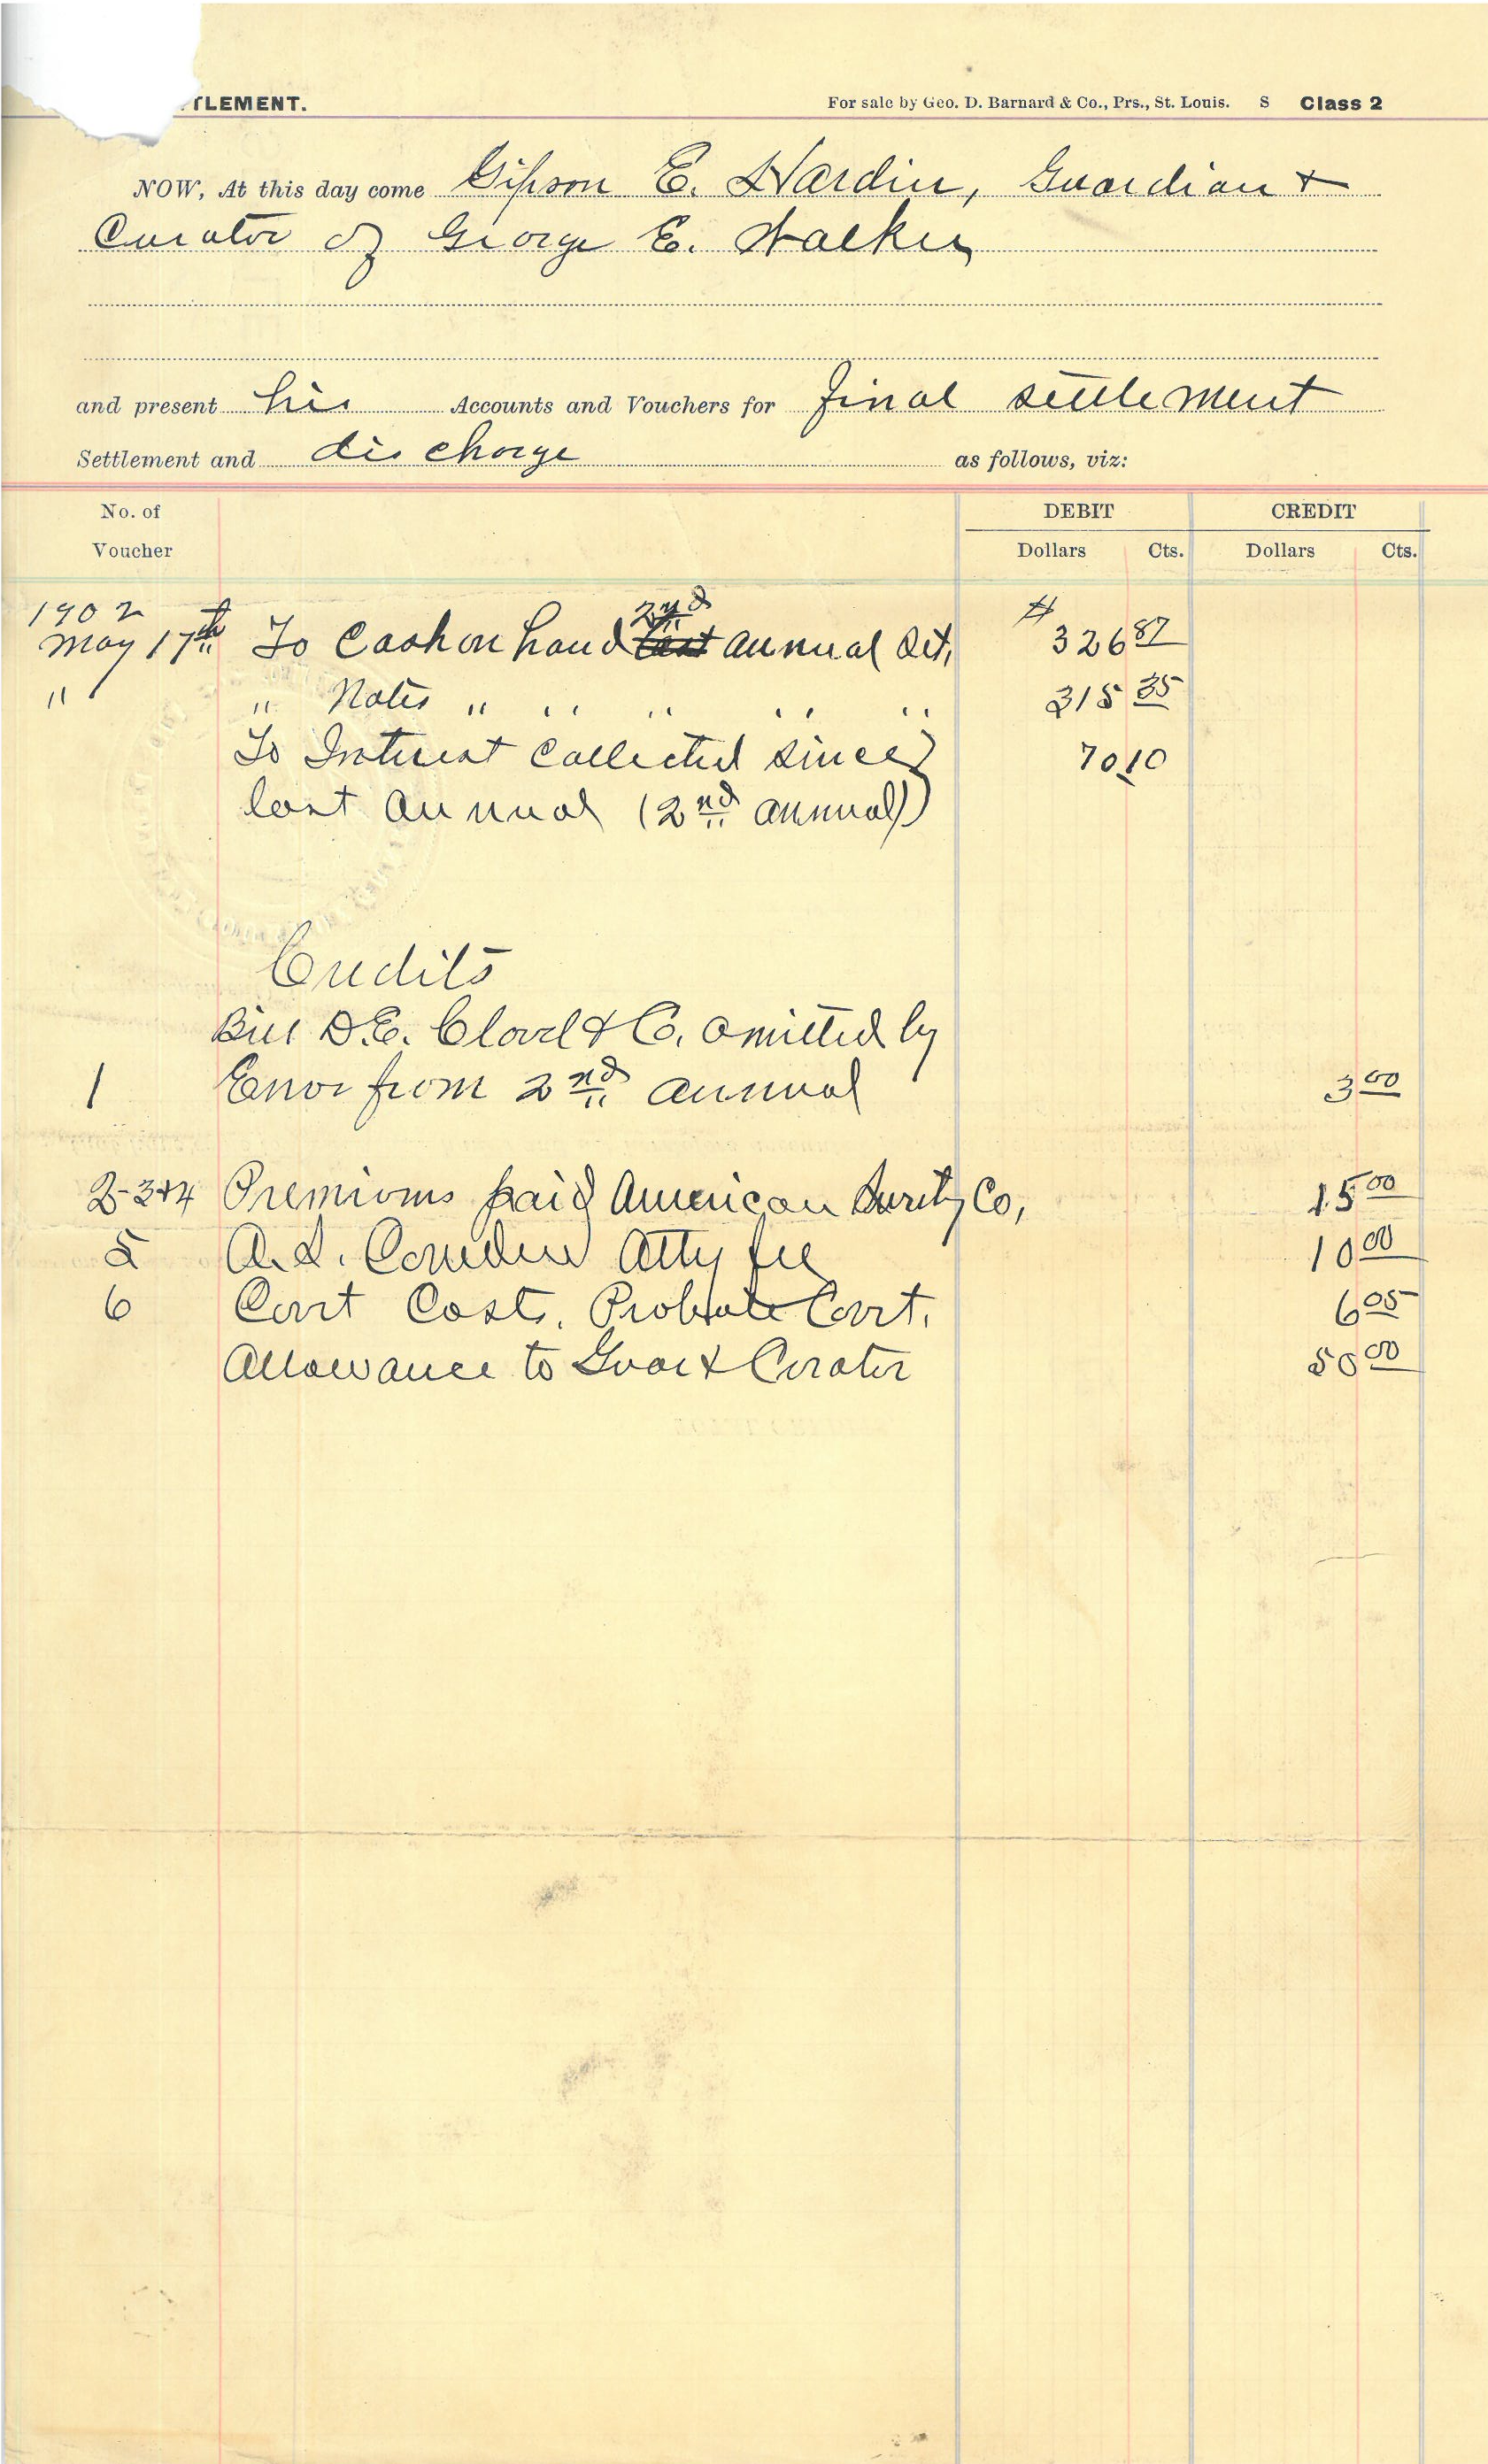 TLEMENT. For sale by Geo. D. Barnard & Co., Prs., St. Louis. S Class 2
NOW, At this day come Gipson E. Hardin, Guardian &
Curator of George E. Walker
and present his Accounts and Vouchers for final settlement
Settlement and discharge as follows, viz:
No. of Voucher DEBIT CREDIT
Dollars Cts. Dollars Cts.
1902 2nd #
May 17th To Cash on hand last annual Set, 326 87
" " Notes " " " " " 315 35
To Interest Collected since 70 10
last annual (2nd annual)
Credits
Bill D.E. & Co. omitted by
1 Error from 2nd annual 3 00
2-3+4 Premiums paid American Surity Co, 15 00
5 Atty fee 10 00
6 Court Costs, Probate Court. 6 05
Allowance to Guar & Curator 50 00